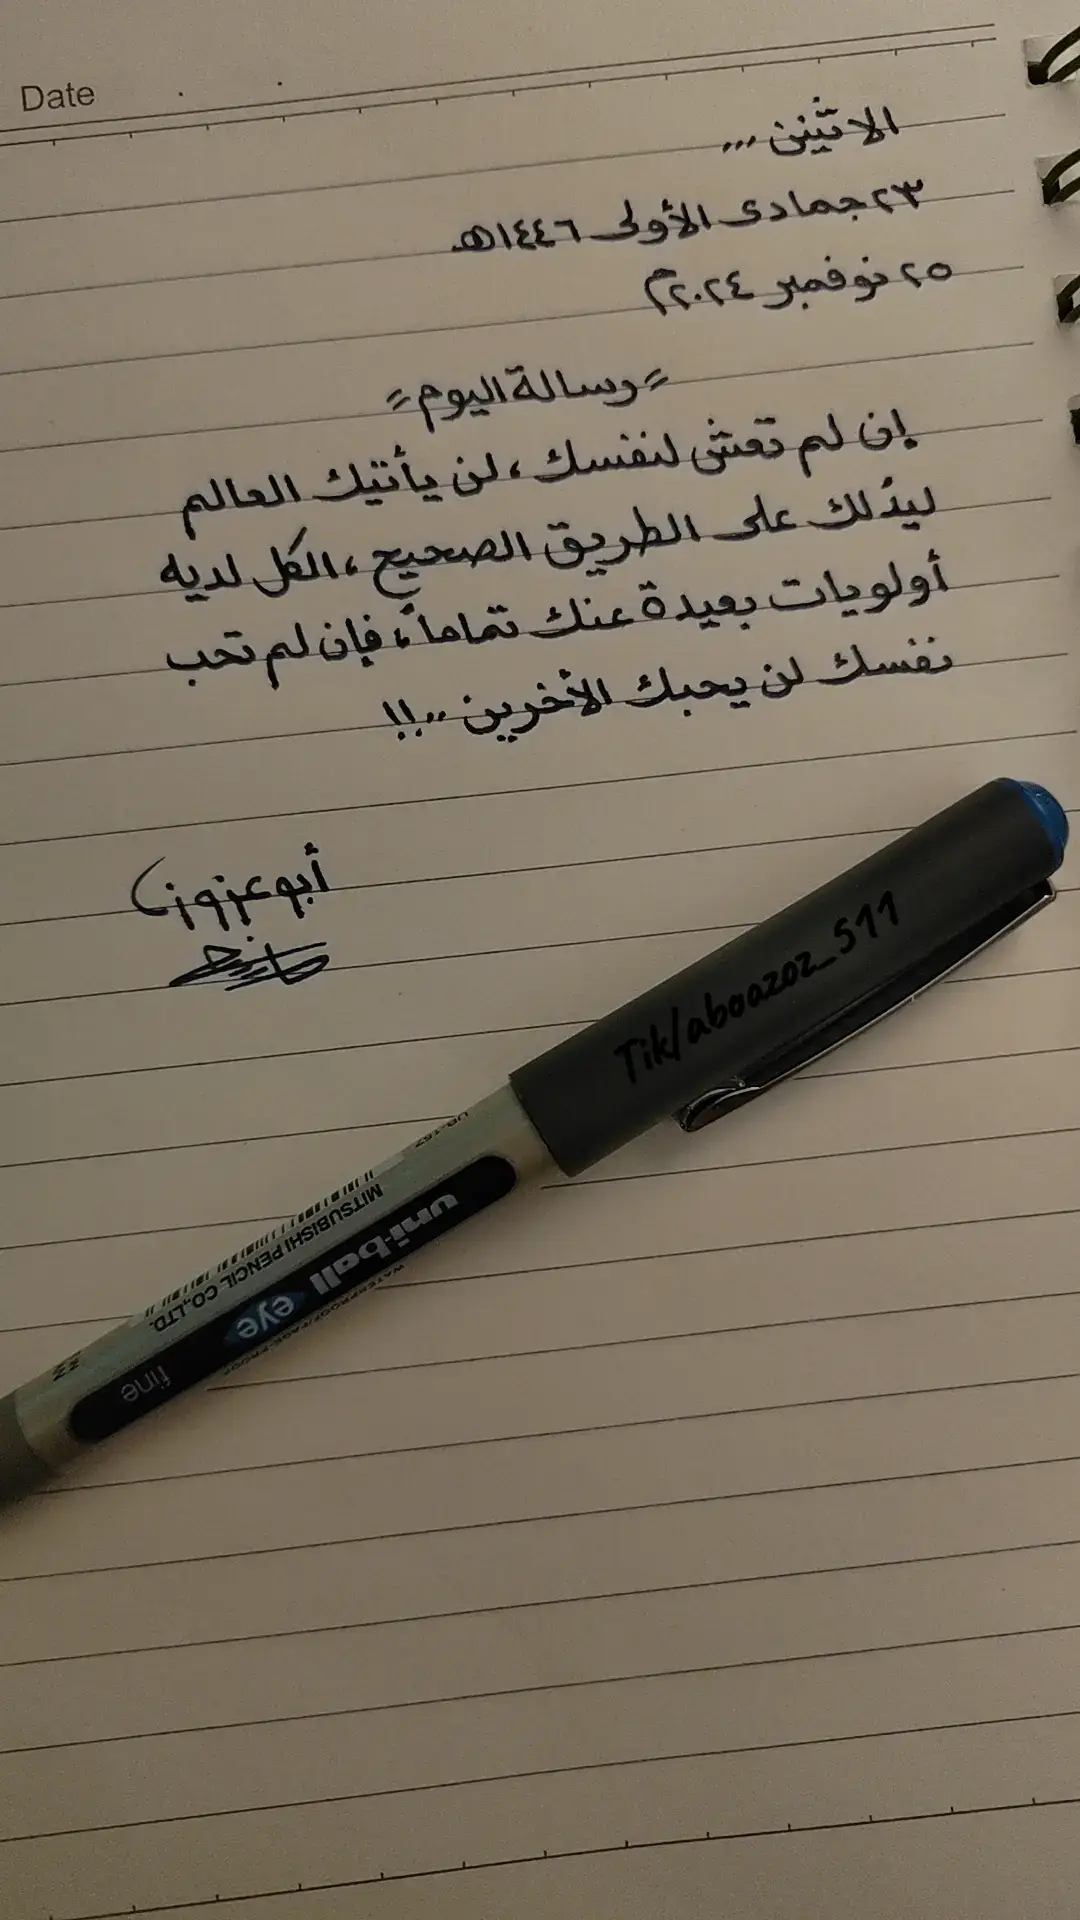 Date
الاثنين ...
٢٣ جمادى الأولى ١٤٤٦هـ
٢٥ نوفمبر ٢٠٢٤م
= رسالة اليوم =
إن لم تعش لنفسك ، لن يأتيك العالم
ليدُلك على الطريق الصحيح ، الكل لديه
أولويات بعيدة عنك تماماً ، فإن لم تحب
نفسك لن يحبك الأخرين ..!!
أبوعزوز
Tik/aboazoz_511
UB-157
uni-ball eye
fine
MITSUBISHI PENCIL CO.,LTD.